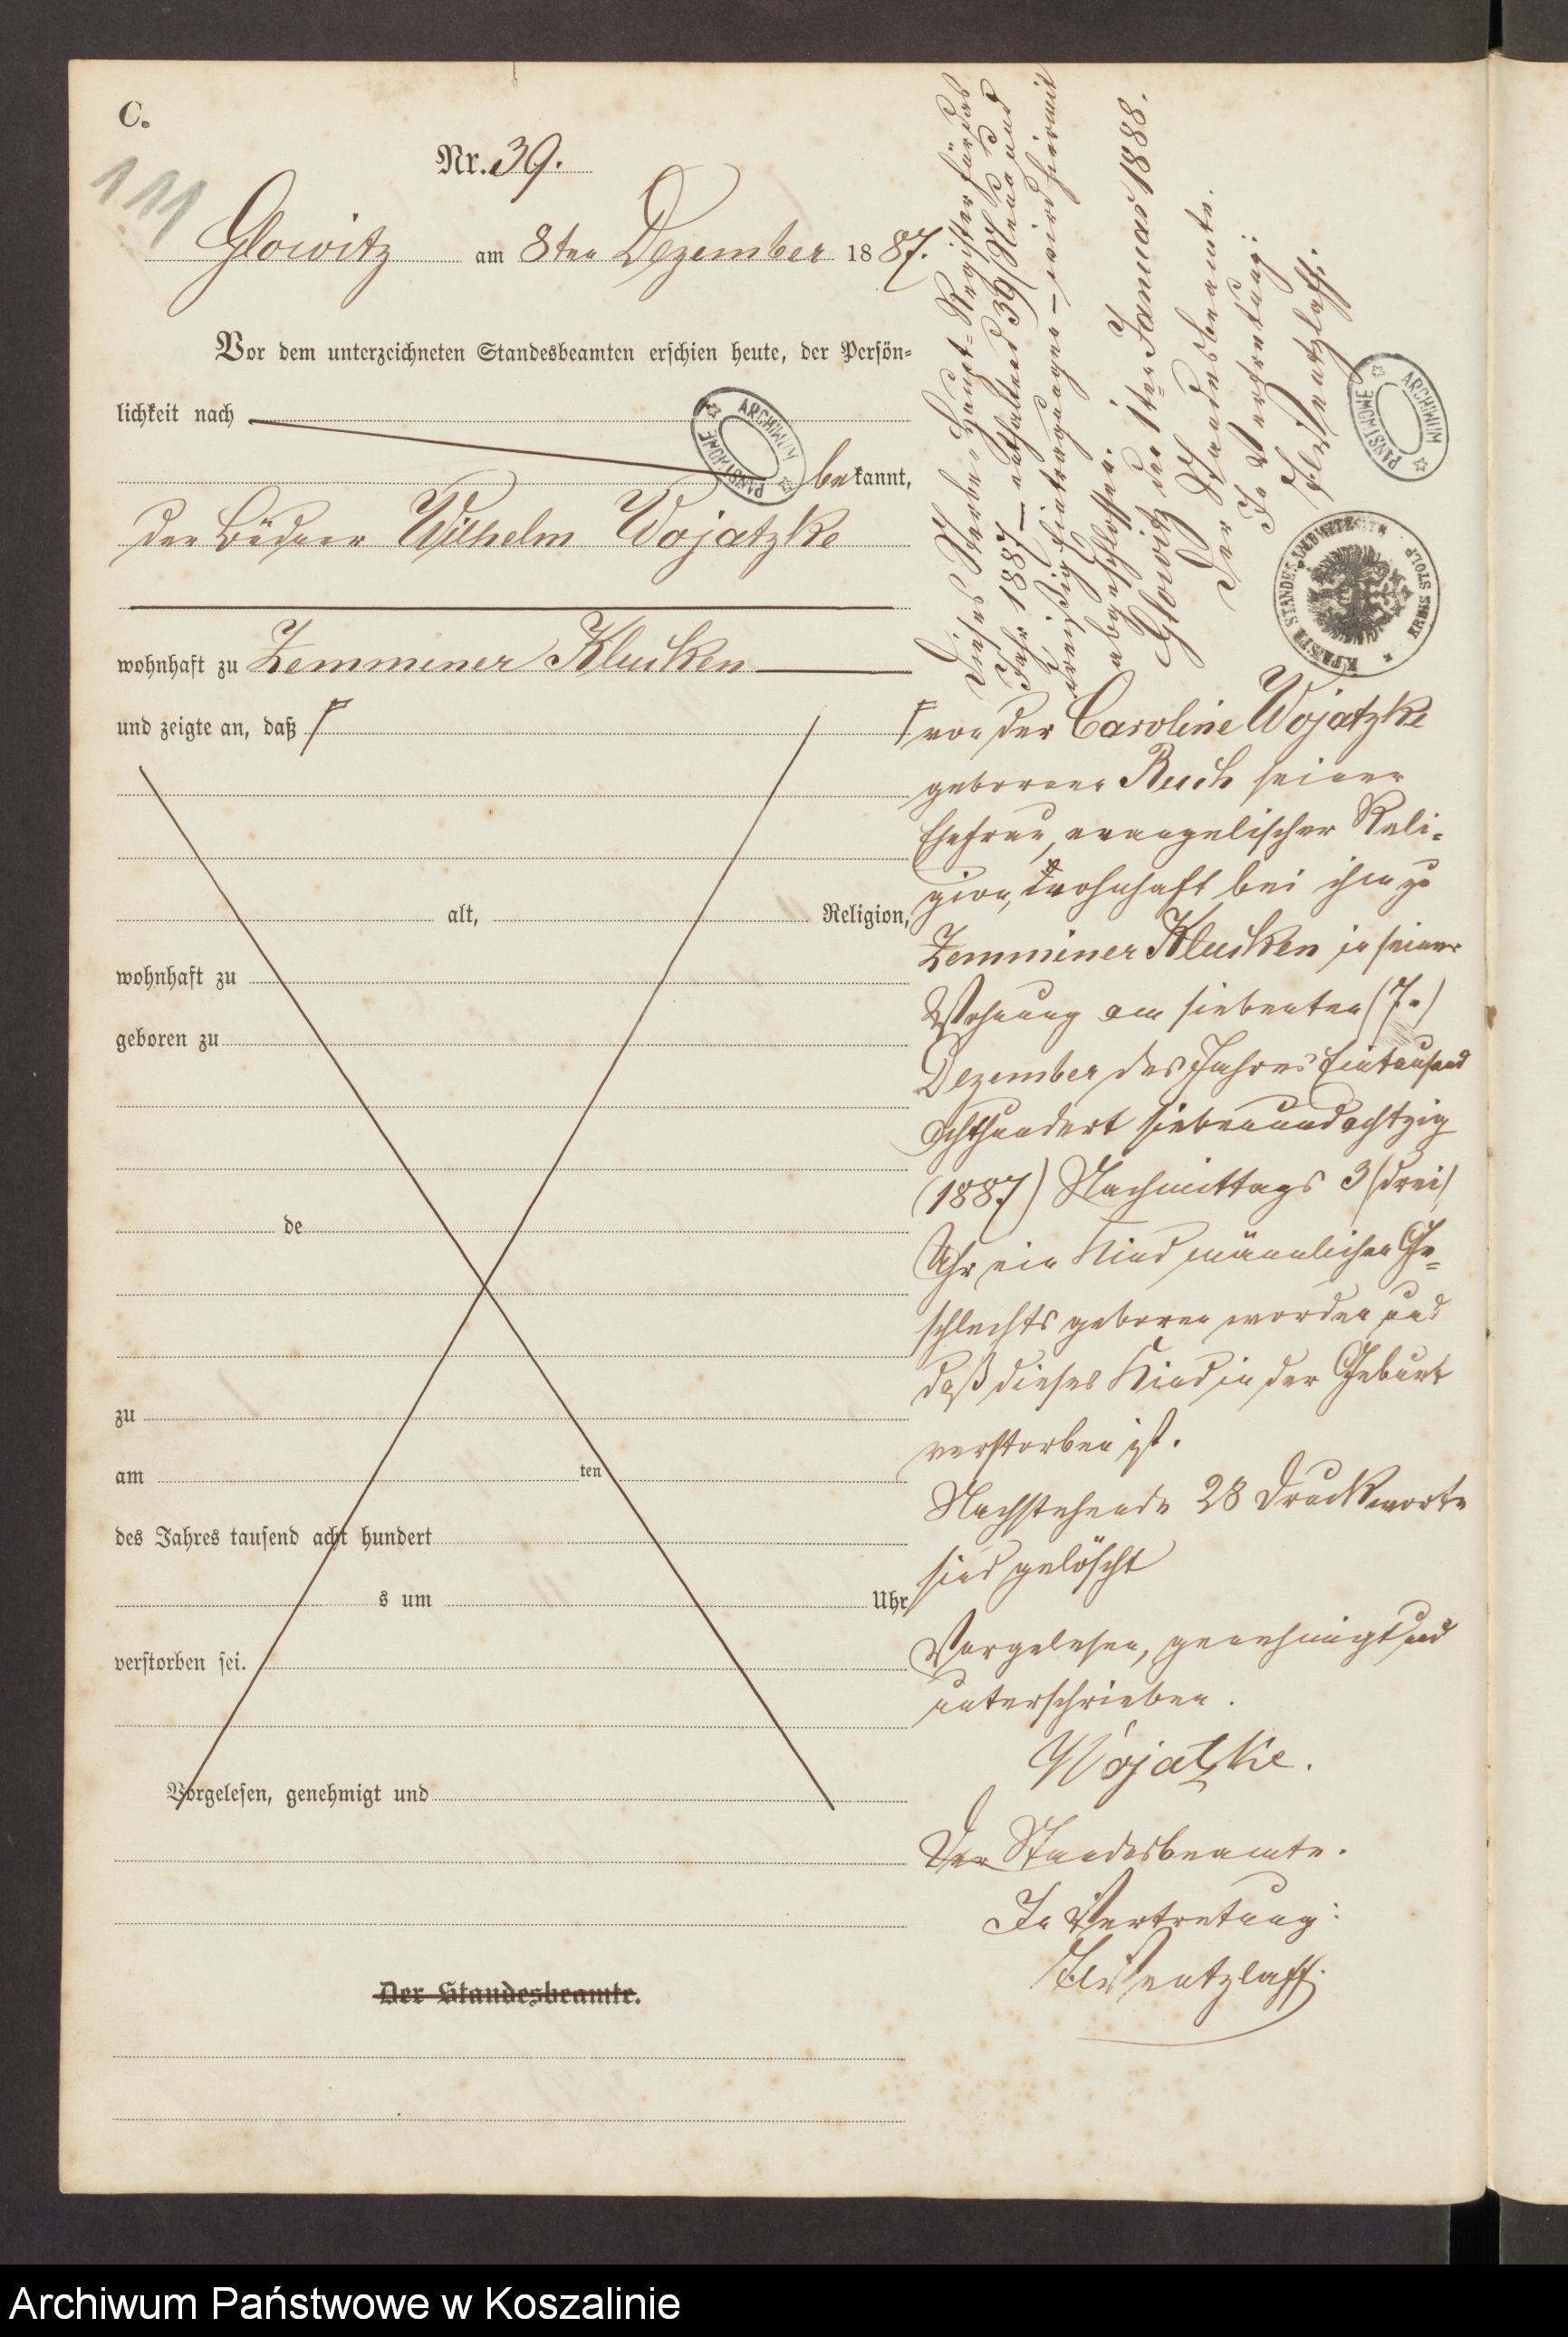 C.
111
Nr. 39.
Glowitz am 8ten Dezember 1887.
Vor dem unterzeichneten Standesbeamten erschien heute, der Persön-
lichkeit nach
bekannt,
der Büdner Wilhelm Wojatzke
wohnhaft zu Zemminer Klucken
und zeigte an, daß
alt, Religion,
wohnhaft zu
geboren zu
de
zu
am ten
des Jahres tausend acht hundert
s um Uhr
verstorben sei.
Vorgelesen, genehmigt und
Der Standesbeamte.
Dieses Sterbe-Haupt-Register für das
Jahr 1887 – enthaltend 39 /Neun und
dreißig/ Eintragungen – wird hiermit
abgeschlossen.
Glowitz den 1ten Januar 1888.
Der Standesbeamte.
In Vertretung:
ARCHIWUM PAŃSTWOWE
ARCHIWUM PAŃSTWOWE
von der Caroline Wojatzke
geborener Ruch seiner
Ehefrau, evangelischer Reli-
gion, wohnhaft bei ihm zu
Zemminer Klucken in seiner
Wohnung am siebenten (7.)
Dezember des Jahres Eintausend
Achthundert siebenundachtzig
(1887) Nachmittags 3 /drei/
Uhr ein Kind männlichen Ge-
schlechts geboren worden und
daß dieses Kind in der Geburt
verstorben ist.
Nachstehende 28 Druckworte
sind gelöscht
Vorgelesen, genehmigt und
unterschrieben.
Wojatzke.
Der Standesbeamte.
In Vertretung:
Archiwum Państwowe w Koszalinie